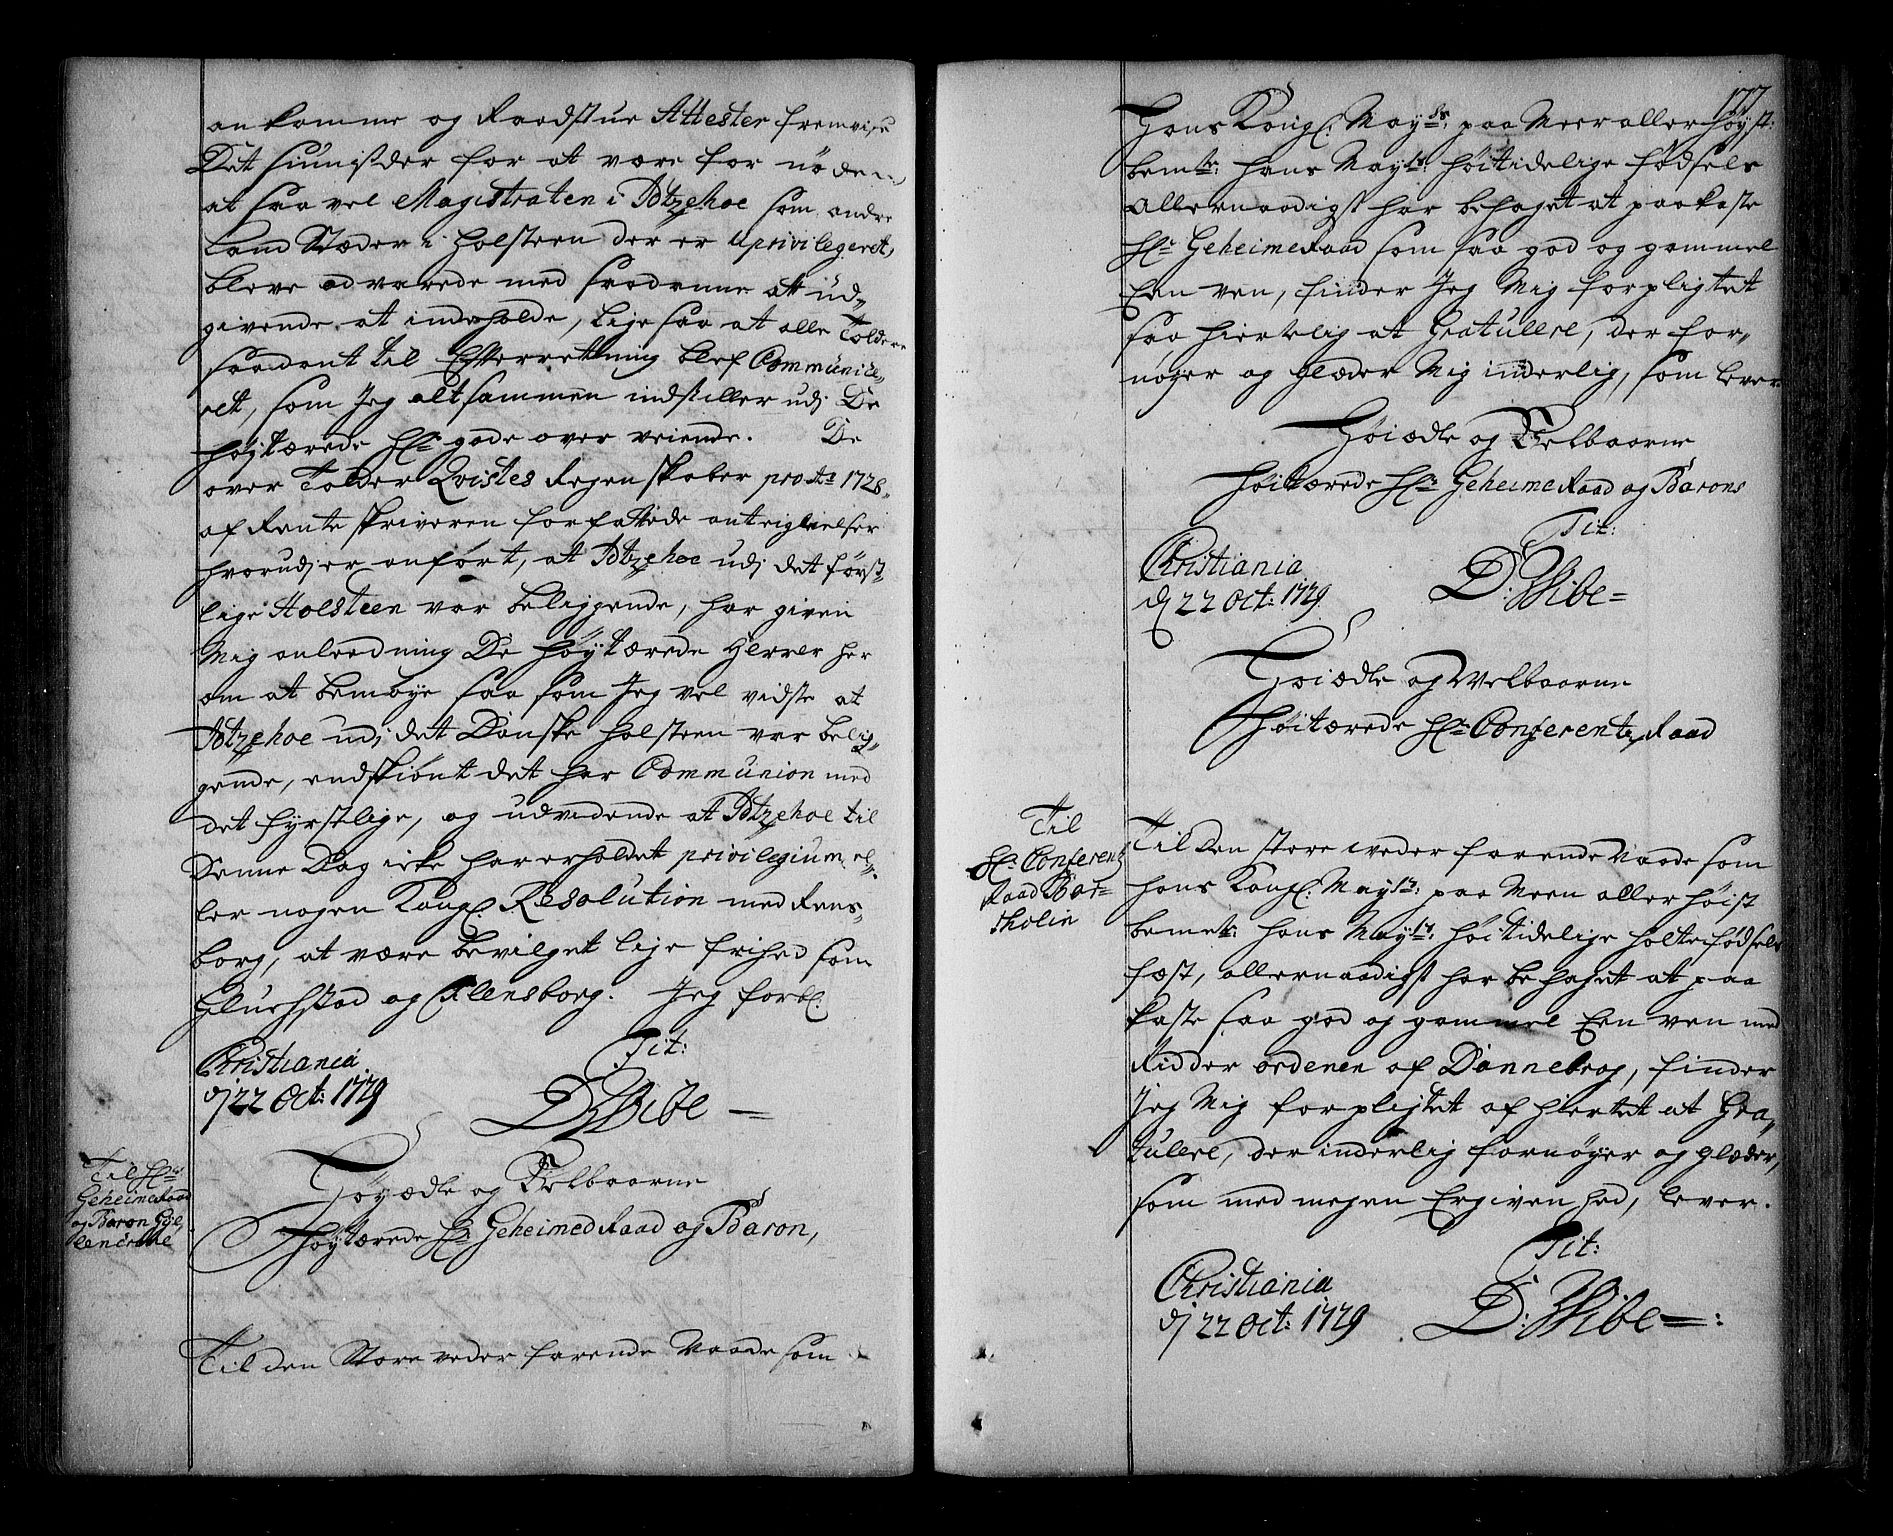 ankomme og Raadstue Attester fremvise
Det siunis der for at være for nøden
at saa vel Magistraten i Itzehoe som andre
Land Stæder i Holsteen der er uprivilegeret,
bleve advarede med saadanne att ud„
givende at indeholde, lige saa at alle Toldere
saadant til Efterretning blef Communice„
ret, som Jeg alt sammen indstiller udj De
høytærede Hr: gode over veiende. De
over Tolder Qvistes Regenskaber pro Ao 1728„
af Renteskriveren forfattede antegnelser
hvorudj er anført, at Itzehoe udj det første„
lige Holsteen var beliggende, har given
Mig anledning De høytærede Herrer her
om at bemøye saa som Jeg vel vidste at
Itzehoe udj det Danske Holsteen var belig„
gende, endskiønt det har Communion med
det fyrstlige, og udvidende at Itzehoe til
Denne Dag icke har erholdet privilegium el„
ler nogen Kongl. Resolution med Rens„
borg, at være bevilget lige frihed som
Gluchstad og Flensborg. Jeg forbl.
Tit:
Christiania
dj 22 Oct: 1729
D. Wibe =
Til Hr:
Geheimeraad
og Baron Gyl„
lencrone
Høyædle og Velbaarne
Høytærede Hr: Geheimed Raad og Baron,
Til den Store veder farende Naade som
177
Hans Kongl. Mayts: paa Meer aller høyst:
bemte: hans Mayts: høitidelige fødsels
Allernaadigst har behaget at paakaste
Hr: Geheime Raad som saa god og gammel
Een ven, finder Jeg Mig forpligtet
saa hiertelig at Gratulere, der for„
nøger og glæder Mig inderlig, som lever
Høiædle og Velbaarne
Høitærede Hr: Geheime Raad og Barons
Tit:
Christiania
dj 22 Oct: 1729
D: Wibe =
Høiædle og Welbaarne
Høitærede Hr: Conferentz Raad
Til
Hr: Conferentz
Raad Bar=
tholin
Til den store weder farende Naade som
hans Kongl. Mayts: paa Meen aller høist
bemte: hans Mayts: høitidelige holte fødsels
fæst, allernaadigst har behaget at paa
kaste saa god og gammel Een ven med
Ridder ordenen af Dannebrog, finder
Jeg Mig forpligtet af hiertet at Gra„
tulere, der inderlig fornøyer og glæder,
som med megen Ergivenhed, lever.
Tit:
Christiania
dj 22 Oct: 1729
D: Wibe =: